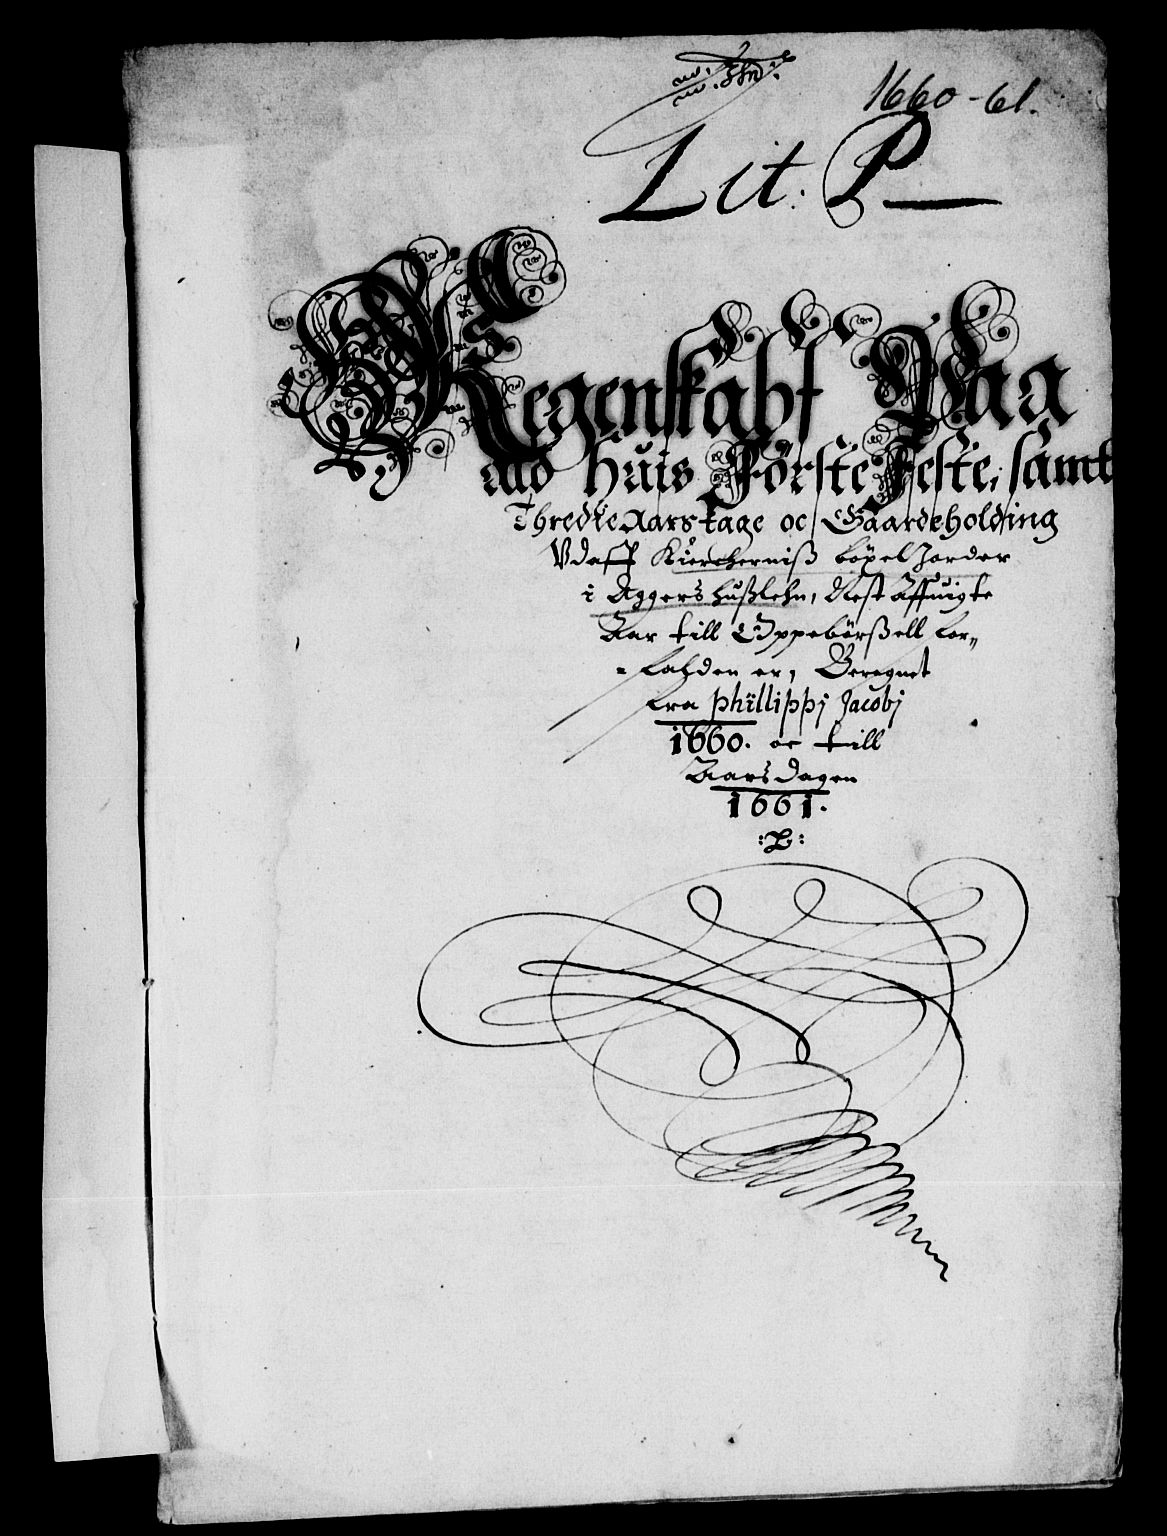 1660-61.
Lit. P
Regenskabs Paa
ald huis Förste Feste, samt
Thredie Aars tage oc Gaardeholding
Vdaff Kiercherniß böxel Jorder
i Aggershußlehn, Nest Affuigte
Aar till Oppebörßell for„
falden er, Beregnet
fra Phillippj Jacobj
1660. oc till
Aarsdagen
1661.